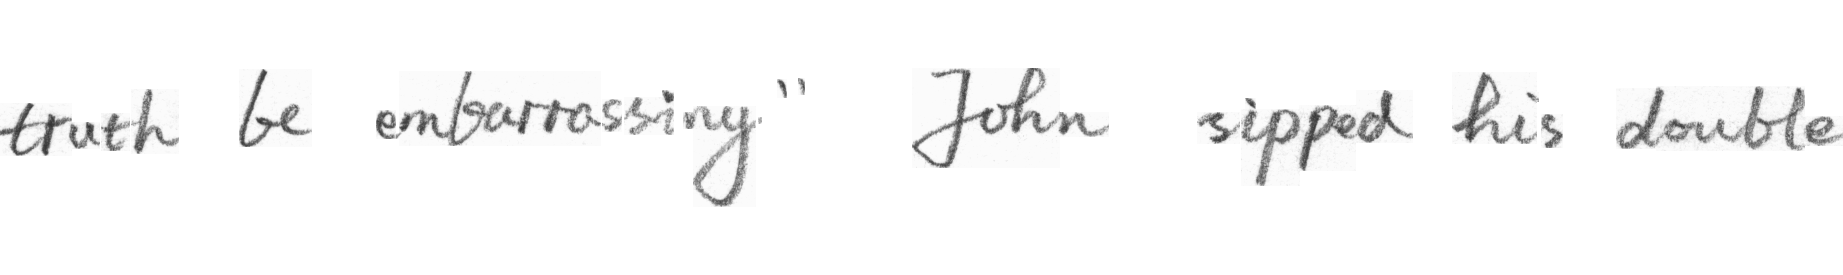 truth be embarrassing" John sipped his double